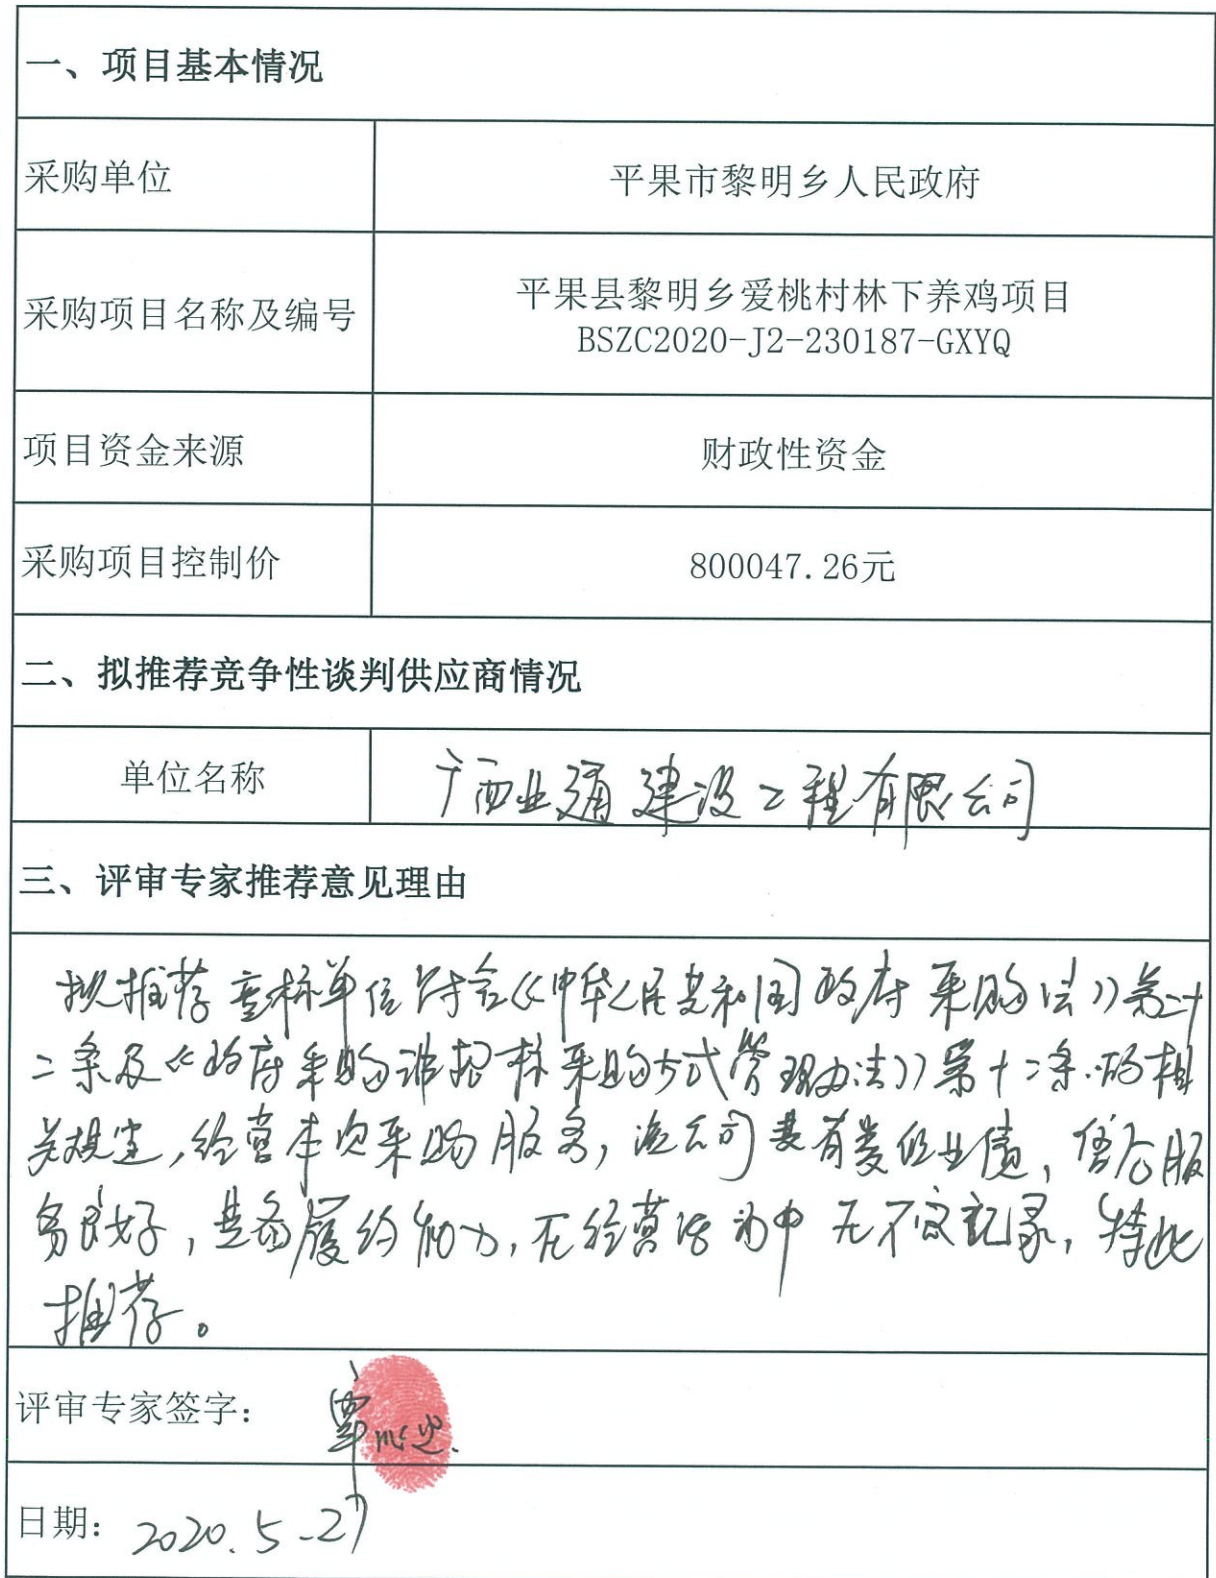 一、项目基本情况
采购单位
平果市黎明乡人民政府
采购项目名称及编号
平果县黎明乡爱桃村林下养鸡项目
BSZC2020-J2-230187-GXYQ
项目资金来源
财政性资金
采购项目控制价
800047.26元
二、拟推荐竞争性谈判供应商情况
单位名称
广西业通建设工程有限公司
三、评审专家推荐意见理由
拟推荐单位符合《中华人民共和国政府采购法》第二十
二条及《政府采购非招标采购方式管理办法》第十二条的相
关规定,经营本次采购服务,该公司具有类似业绩,信合服
务良好,具备履约能力,在经营活动中无不良记录,特此
推荐。
评审专家签字:
覃
日期: 2020.5-27